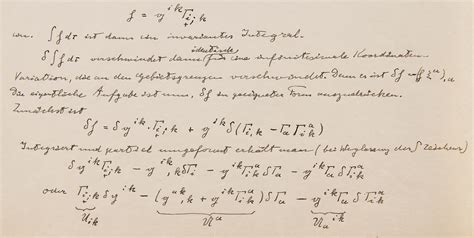 f = g^{ik} Γ_{i;k}
∫ f dτ ist dann ein invariantes Integral.
δ∫ f dτ verschwindet dann identisch für eine infinitesimale Koordinaten-
Variation, die an den Gebietsgrenzen verschwindet. Denn es ist δf = (f ξ^α),α
Die eigentliche Aufgabe ist nun, δf in geeigneter Form auszudrücken.
Zunächst ist
δf = δg^{ik} · Γ_{i;k} + g^{ik} δ(Γ_{i,k} − Γ_α Γ_{ik}^α)
Integriert und partiell umgeformt erhält man (bei Weglassung der ∫ Zeichen)
δg^{ik} Γ_{i;k} − g^{ik},_k δΓ_i − g^{ik} Γ_{ik}^α δΓ_α − g^{ik} Γ_α δΓ_{ik}^α
oder Γ_{i;k} δg^{ik} − (g^{αk},_k + g^{ik} Γ_{ik}^α) δΓ_α − g^{ik} Γ_α δΓ_{ik}^α
U_{ik} U^α U_α^{ik}